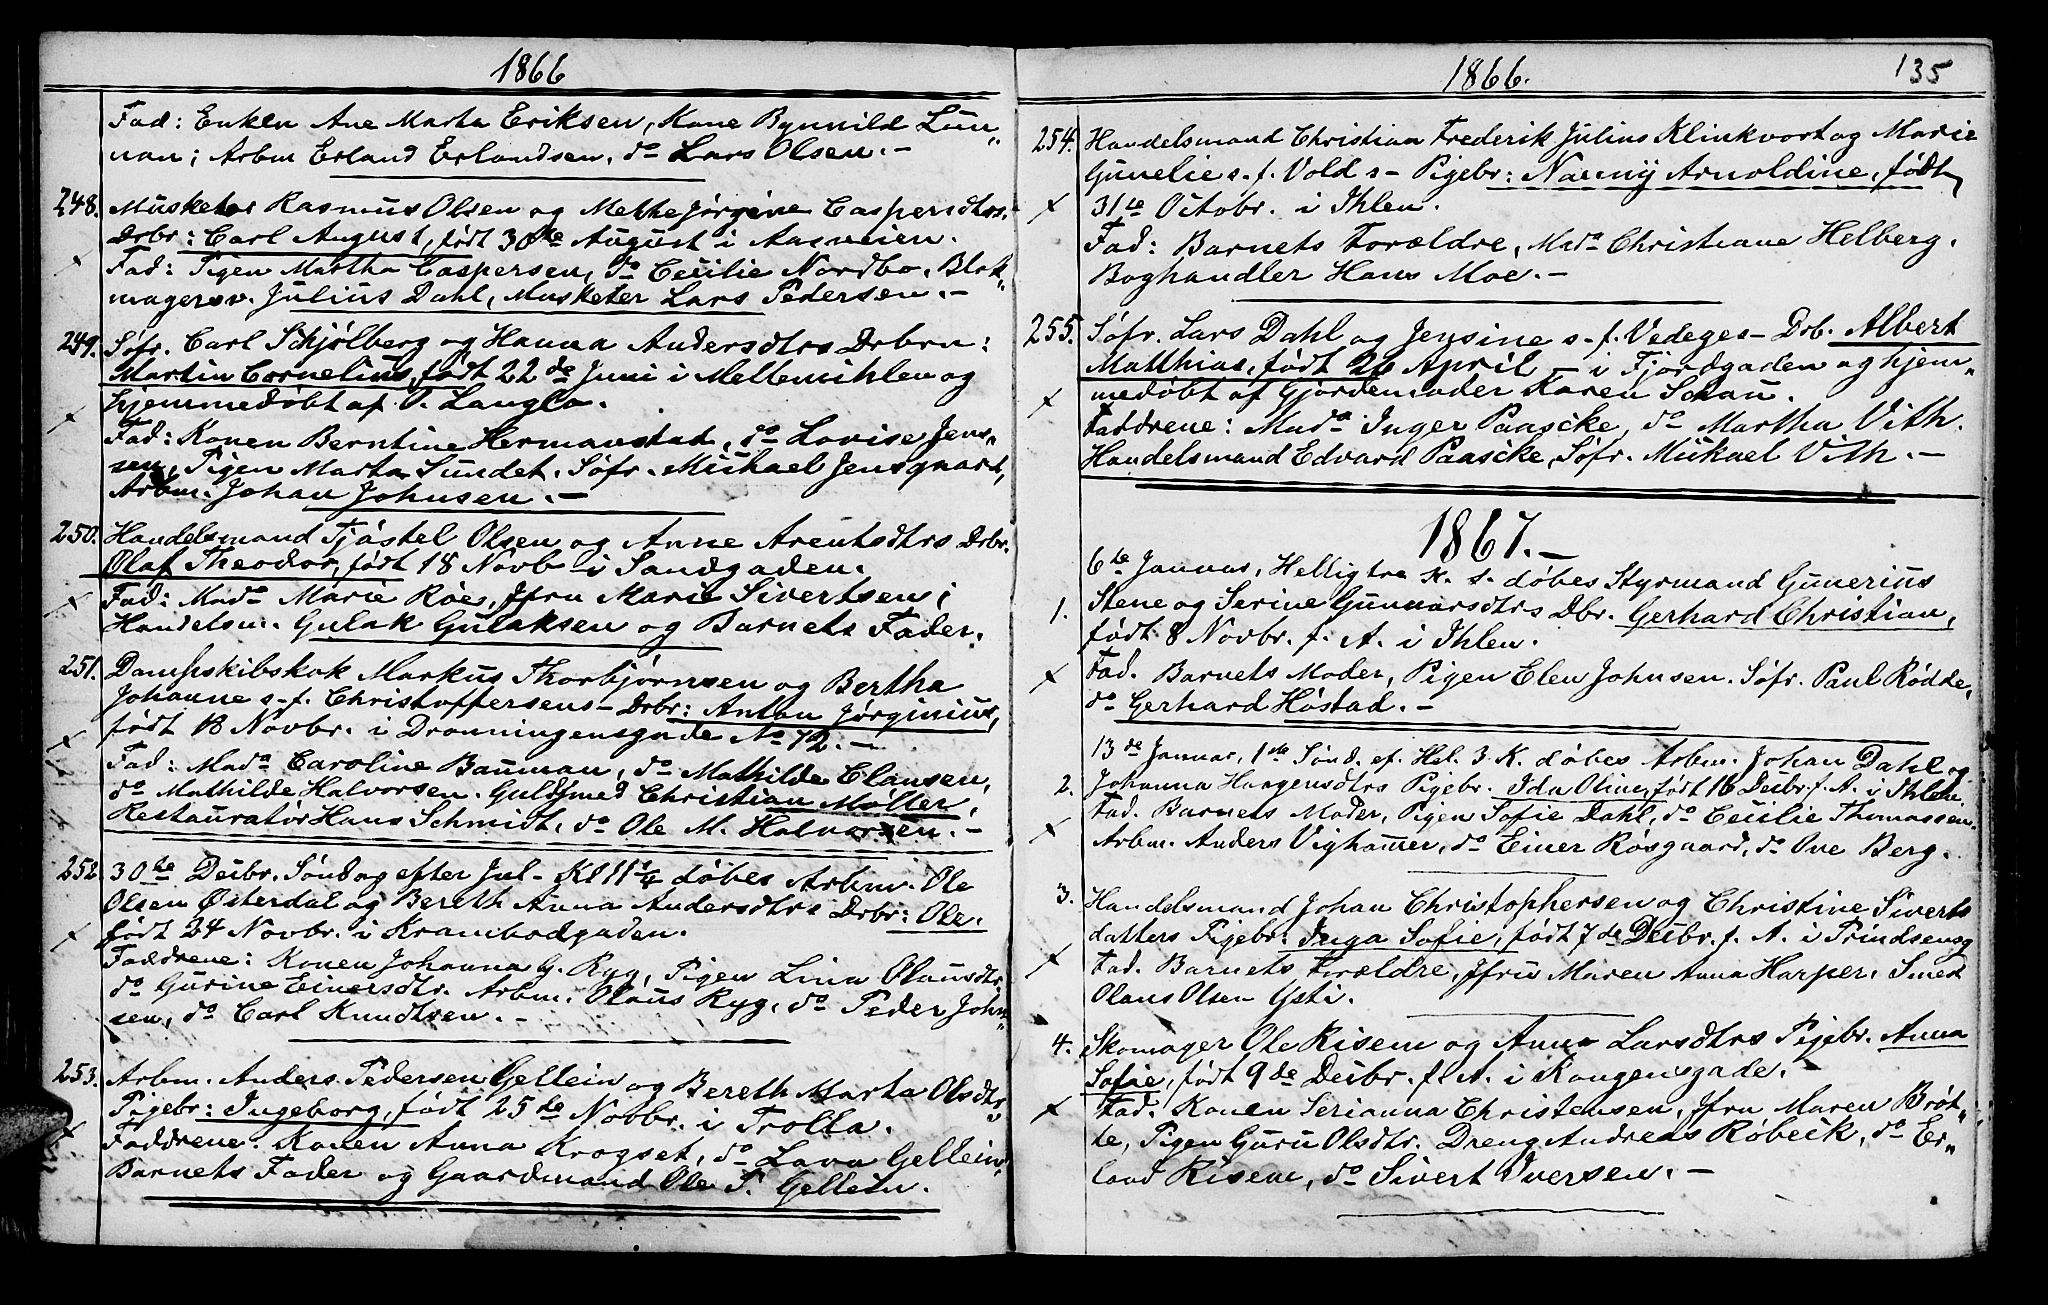 1866
Fad: Enken Ane Marta Eriksen, Kone Bynnild Lun„
nan; Arbm Erland Erlandsen, do Lars Olsen. –
248. Musketer Rasmus Olsen og Methe Jørgine Caspersdtrs
Drbr: Carl August, født 30te August i Aasveien.
Fad: Pigen Martha Caspersen, do Cecilie Nordbo, Blok„
magersv. Julius Dahl, Musketer Lars Pedersen. –
249. Søfr. Carl Schjølberg og Hanna Andersdtrs Drbrn:
Martin Cornelius, født 22de Juni i Mellemihlen og
hjemmedøbt af P. Langlo.
Fad: Konen Berntine Hermanstad, do Lovise Jens„
sen, Pigen Marta Sundet. Søfr. Michael Jensgaart,
Arbm. Johan Johnsen. –
250. Handelsmand Tjøstel Olsen og Anne Arentsdtrs Drbr.
Olaf Theodor, født 18 Novb i Sandgaden.
Fad: Mado Marie Røe, Jfru Marie Sivertsen;
Handelsm. Gulak Gulaksen og Barnets Fader.
251. Dampskibskok Markus Thorbjørnsen og Bertha
Johanne s. f. Christoffersens – Drbr: Anton Jørginius,
født 18 Novbr. i Dronningensgade No 72. –
Fad: Mado Caroline Bauman, do Mathilde Clausen,
do Mathilde Halvorsen. Guldsmed Christian Møller,
Restauratør Hans Schmidt, do Ole M. Halvorsen. –
252. 30te Decbr. Søndag efter Jul – Kl 11¼ døbes Arbm. Ole
Olsen Østerdal og Bereth Anna Andersdtrs Drbr: Ole.
født 24 Novbr. i Krambodgaden.
Faddrene: Konen Johanna G. Ryg, Pigen Lina Olausdtr.
do Gurine Einersdtr. Arbm. Olaus Ryg, do Peder John„
sen, do Carl Knudtsen. –
253. Arbm. Anders Pedersen Gellein og Bereth Marta Olsdtrs
Pigebr: Ingeborg, født 25de Novbr. i Trolla.
Faddrene: Konen Anna Krogset, do Lava Gellein,
Barnets Fader og Gaardmand Ole P. Gellein.
1866.
135
254. Handelsmand Christian Frederik Julius Klinkvort og Marie
Gunelie s. f. Vold s – Pigebr: Nanny Arnoldine, født
31te Octobr. i Ihlen.
Fad: Barnets Forældre, Mado Christiane Helberg.
Boghandler Hans Moe. –
255. Søfr. Lars Dahl og Jensine s. f. Vedeges – Drb. Albert
Matthias, født 26 April – i Fjordgaden og hjem„
medøbt af Gjordemoder Karen Schau.
Faddrene: Mado Inger Paascke, do Martha Vith.
Handelsmand Edvard Paascke, Søfr. Mickael Vith. –
1867. –
6te Januar, Helligtre K. s. døbes Styrmand Gunerius
1. Stene og Serine Gunnarsdtrs Dbr. Gerhard Christian,
født 8 Novbr. f. A. i Ihlen.
Fad. Barnets Moder, Pigen Elen Johnsen. Søfr. Paul Rødde,
do Gerhard Høstad. –
13de Januar, 1ste Sønd. ef. Hel. 3. K. døbes Arbm. Johan Dahl og
2. Johanna Haagensdtrs Pigebr. Ida Oline, født 16 Decbr. f. A. i Ihlen.
Fad. Barnets Moder, Pigen Sofie Dahl, do Cecilie Thomassen.
Arbm. Anders Vighammer, do Einer Røsgaard, do Ove Berg.
3. Handelsmand Johan Christophersen og Christine Siverts
datters Pigebr: Inga Sofie, født 7de Decbr. f. A. i Prindsensg
Fad. Barnets Forældre, Jfru Maren Anna Harper. Smed
Olaus Olsen Ysti.
4. Skomager Ole Risem og Anne Larsdtrs Pigebr. Anna
Sofie, født 9de Decbr. f. A. i Kongensgade.
Fad. Konen Serianna Christensen, Jfru Maren Brøt„
te, Pigen Guru Olsdtr. Dreng Andreas Røbeck, do Er„
land Risem, do Sivert Iversen. –